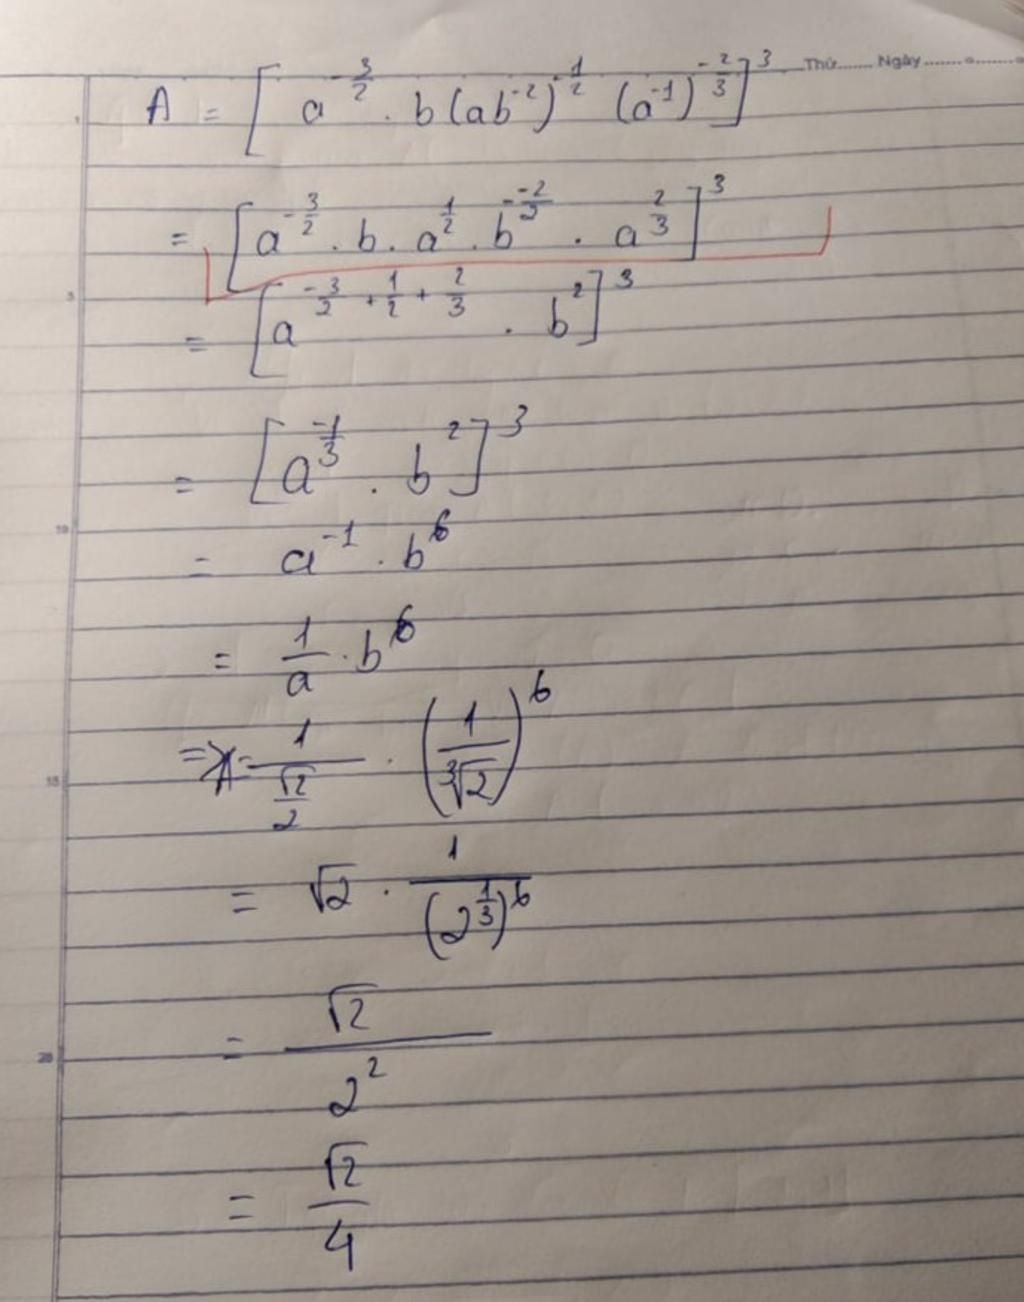 Thứ....... Ngày...................
A = [ a^{-3/2} . b (ab^{-2})^{-1/2} (a^{-1})^{-2/3} ]^3
= [ a^{-3/2} . b . a^{1/2} . b^{--2/2} . a^{2/3} ]^3
5
= [ a^{-3/2 + 1/2 + 2/3} . b^2 ]^3
= [ a^{-1/3} . b^2 ]^3
10
= a^{-1} . b^6
= 1/a . b^6
=> A = 1/(√2/2) . (1/∛2)^6
15
= √2 . 1/(2^{1/3})^6
20
= √2/2^2
= √2/4